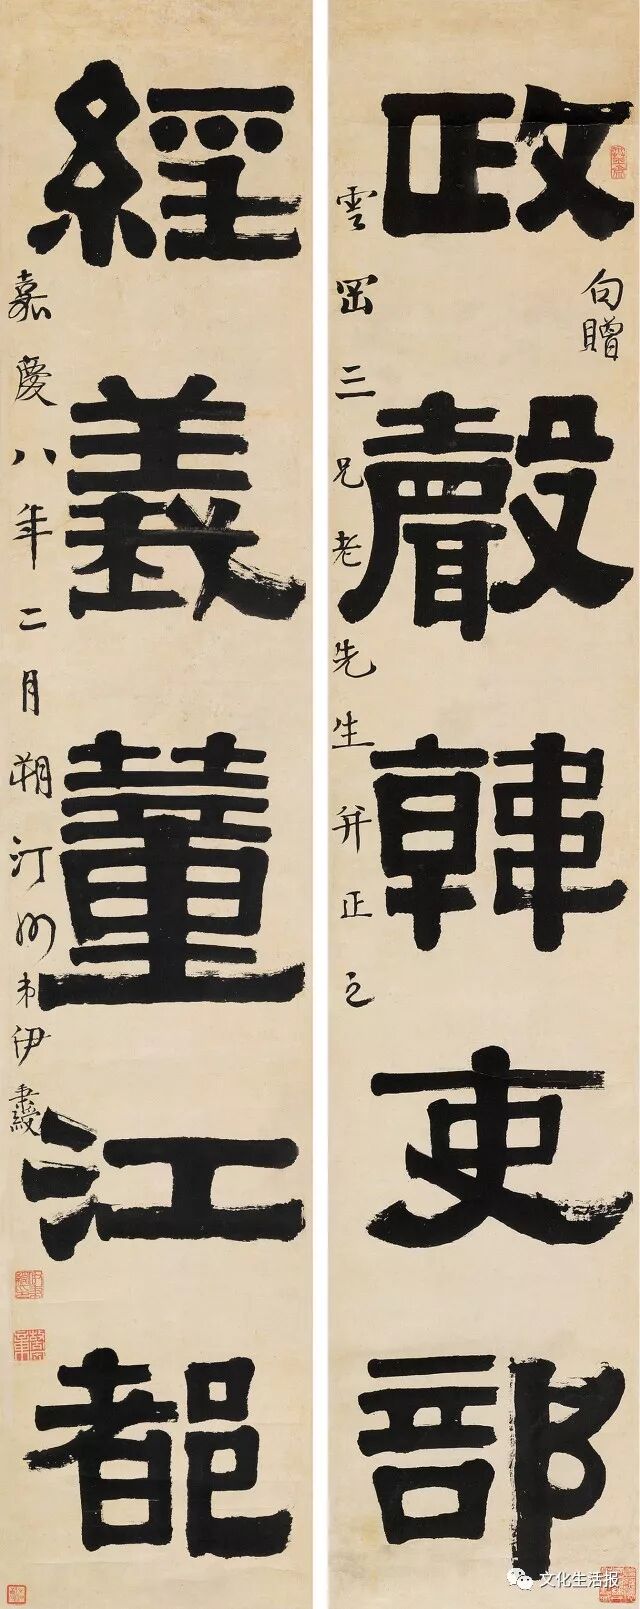 政聲韓吏部
句贈
雲罡三兄老先生并正之
經義董江都
嘉慶八年二月朔汀州弟伊秉綬
文化生活报